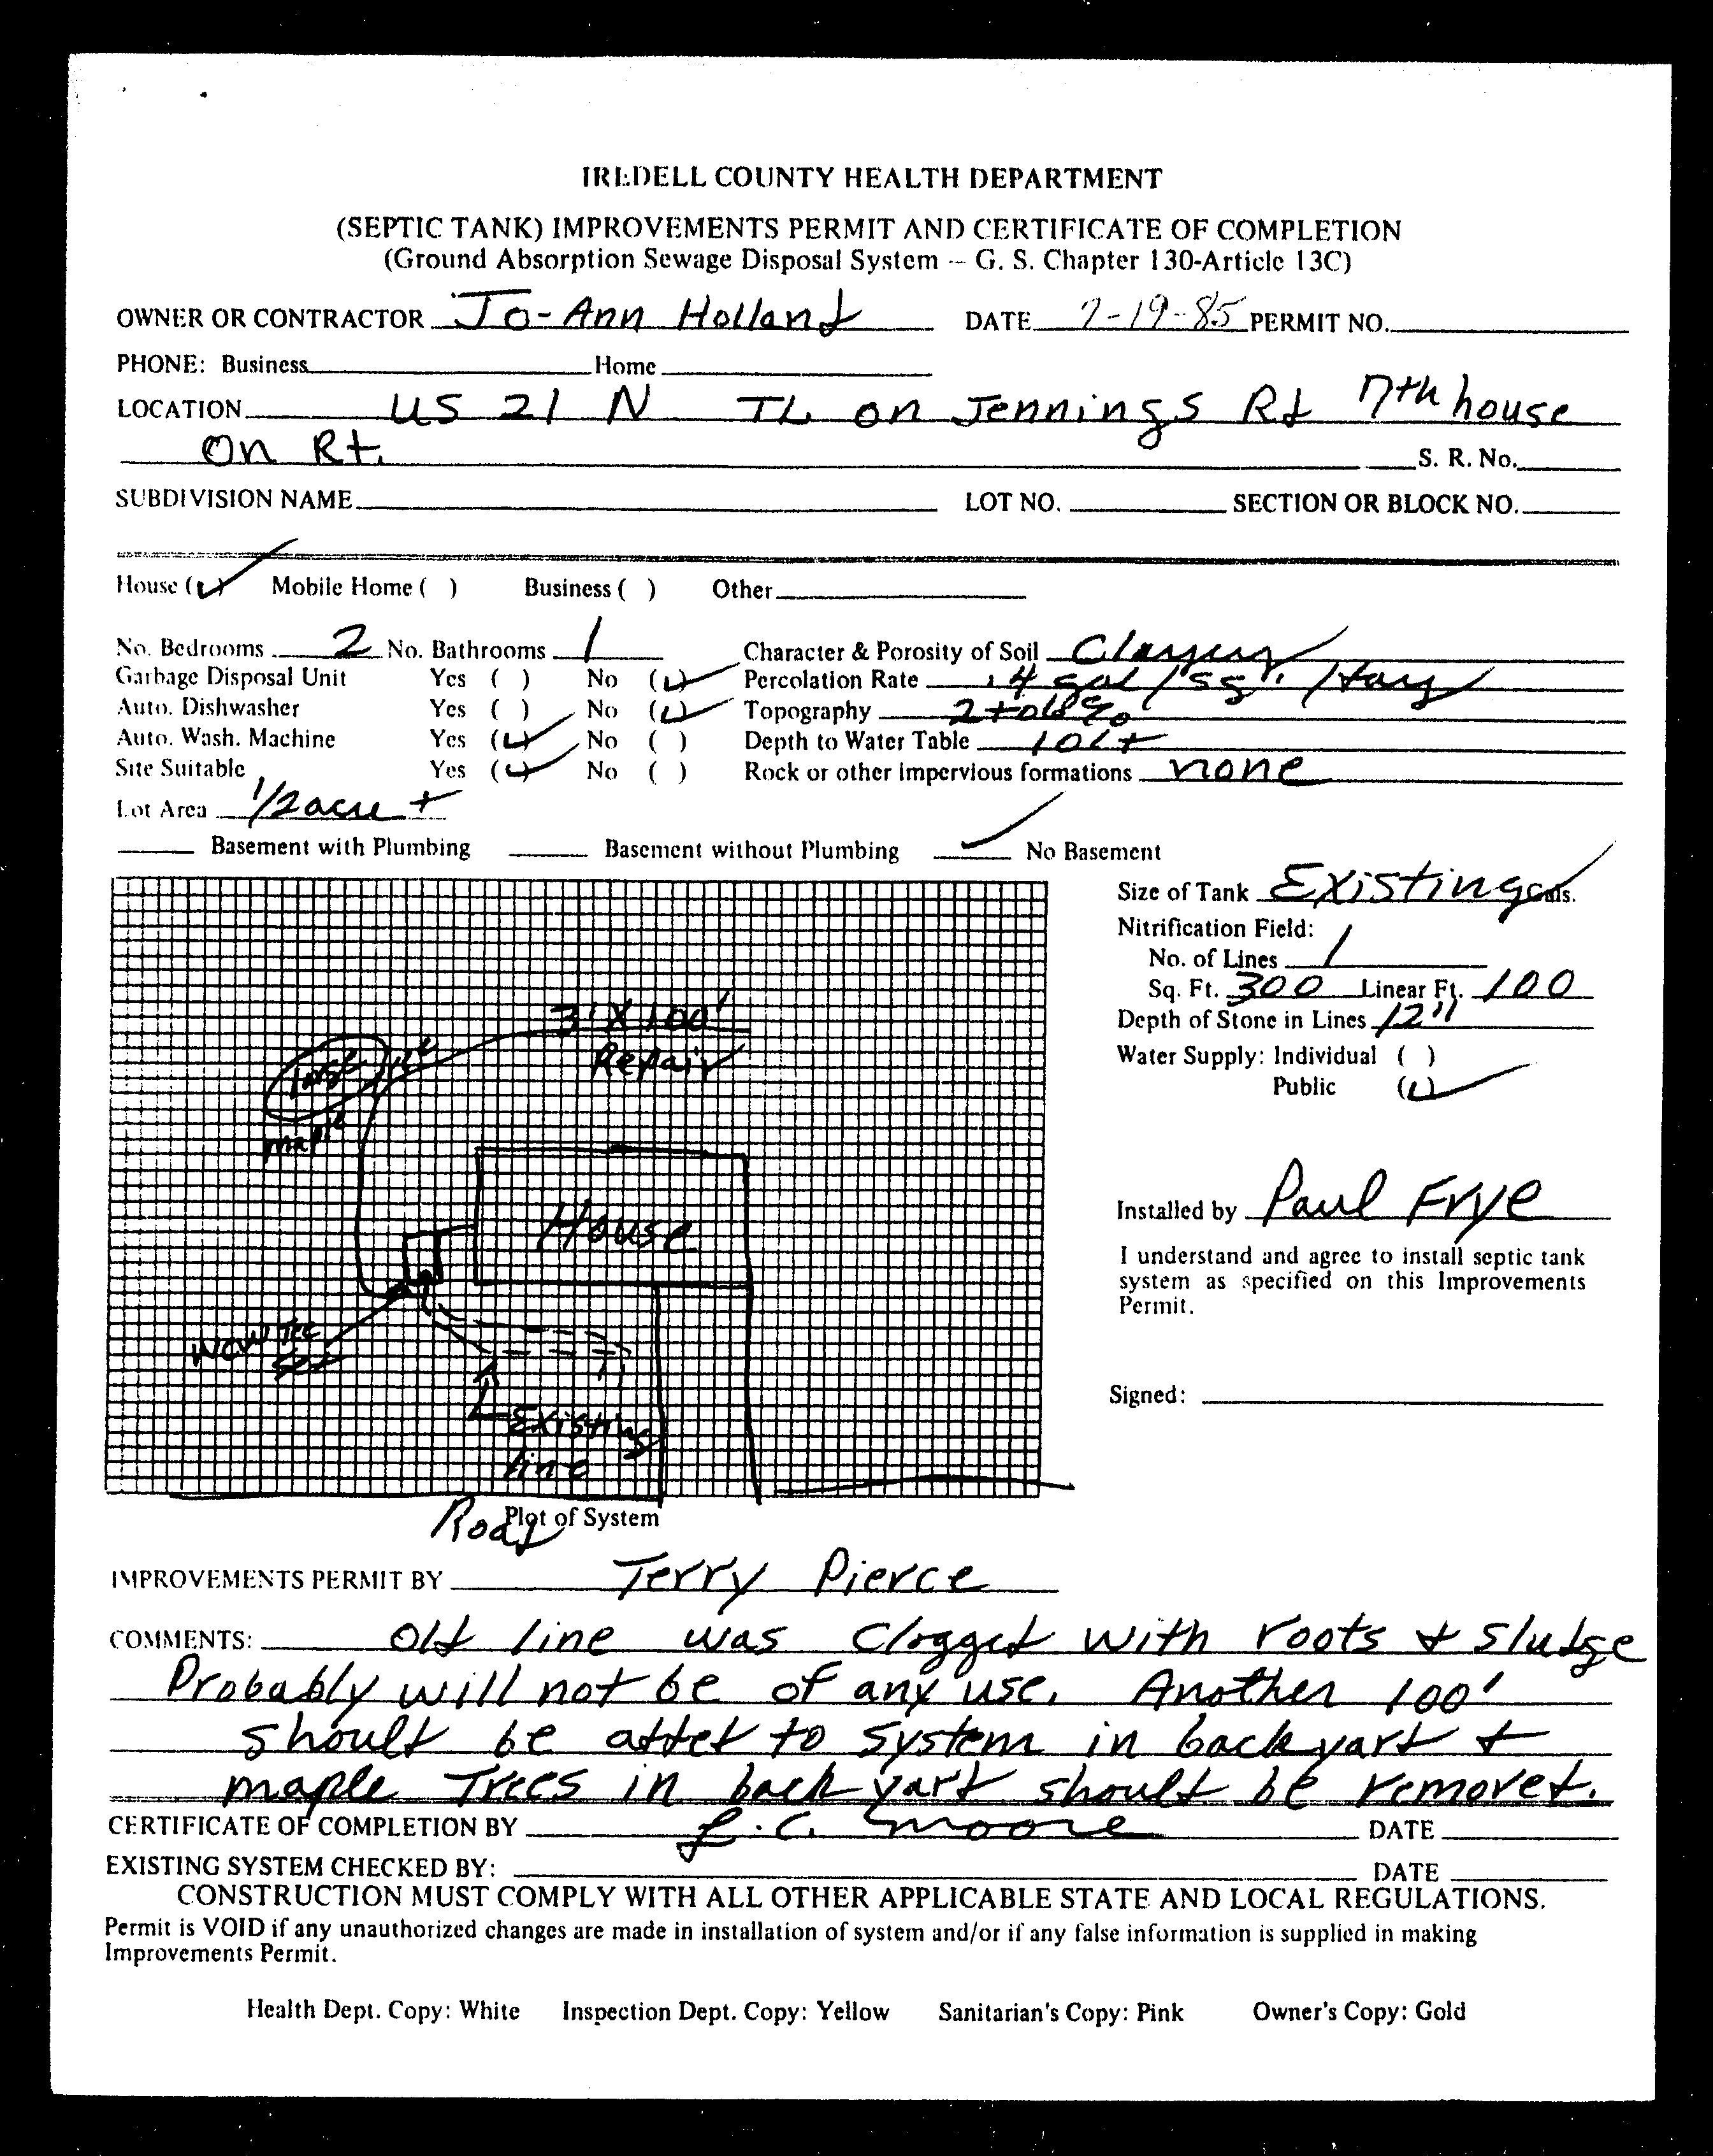 IREDELL COUNTY HEALTH DEPARTMENT
(SEPTIC TANK) IMPROVEMENTS PERMIT AND CERTIFICATE OF COMPLETION
(Ground Absorption Sewage Disposal System – G. S. Chapter 130-Article 13C)
OWNER OR CONTRACTOR Jo-Ann Holland DATE 7-19-85 PERMIT NO.
PHONE: Business Home
LOCATION US 21 N TL on Jennings Rd 7th house
on Rt. S. R. No.
SUBDIVISION NAME LOT NO. SECTION OR BLOCK NO.
House (✓) Mobile Home ( ) Business ( ) Other
No. Bedrooms 2 No. Bathrooms 1 Character & Porosity of Soil Clayey
Garbage Disposal Unit Yes ( ) No (✓) Percolation Rate .4 gal/sq. /day
Auto. Dishwasher Yes ( ) No (✓) Topography
Auto. Wash. Machine Yes (✓) No ( ) Depth to Water Table 10'+
Site Suitable Yes (✓) No ( ) Rock or other impervious formations none
Lot Area 1/2 acre +
Basement with Plumbing Basement without Plumbing ✓ No Basement
Size of Tank Existing Gals.
Nitrification Field:
No. of Lines 1
Sq. Ft. 300 Linear Ft. 100
Depth of Stone in Lines 12"
Water Supply: Individual ( )
Public (✓)
3' X 100'
Repair
large
maple
House
New Tee
Existing
line
Road
Plot of System
Installed by Paul Frye
I understand and agree to install septic tank
system as specified on this Improvements
Permit.
Signed:
IMPROVEMENTS PERMIT BY Terry Pierce
COMMENTS: Old line was clogged with roots + sludge
Probably will not be of any use. Another 100'
should be added to system in back yard +
maple Trees in back yard should be removed.
CERTIFICATE OF COMPLETION BY L.C. Moore DATE
EXISTING SYSTEM CHECKED BY: DATE
CONSTRUCTION MUST COMPLY WITH ALL OTHER APPLICABLE STATE AND LOCAL REGULATIONS.
Permit is VOID if any unauthorized changes are made in installation of system and/or if any false information is supplied in making
Improvements Permit.
Health Dept. Copy: White Inspection Dept. Copy: Yellow Sanitarian's Copy: Pink Owner's Copy: Gold